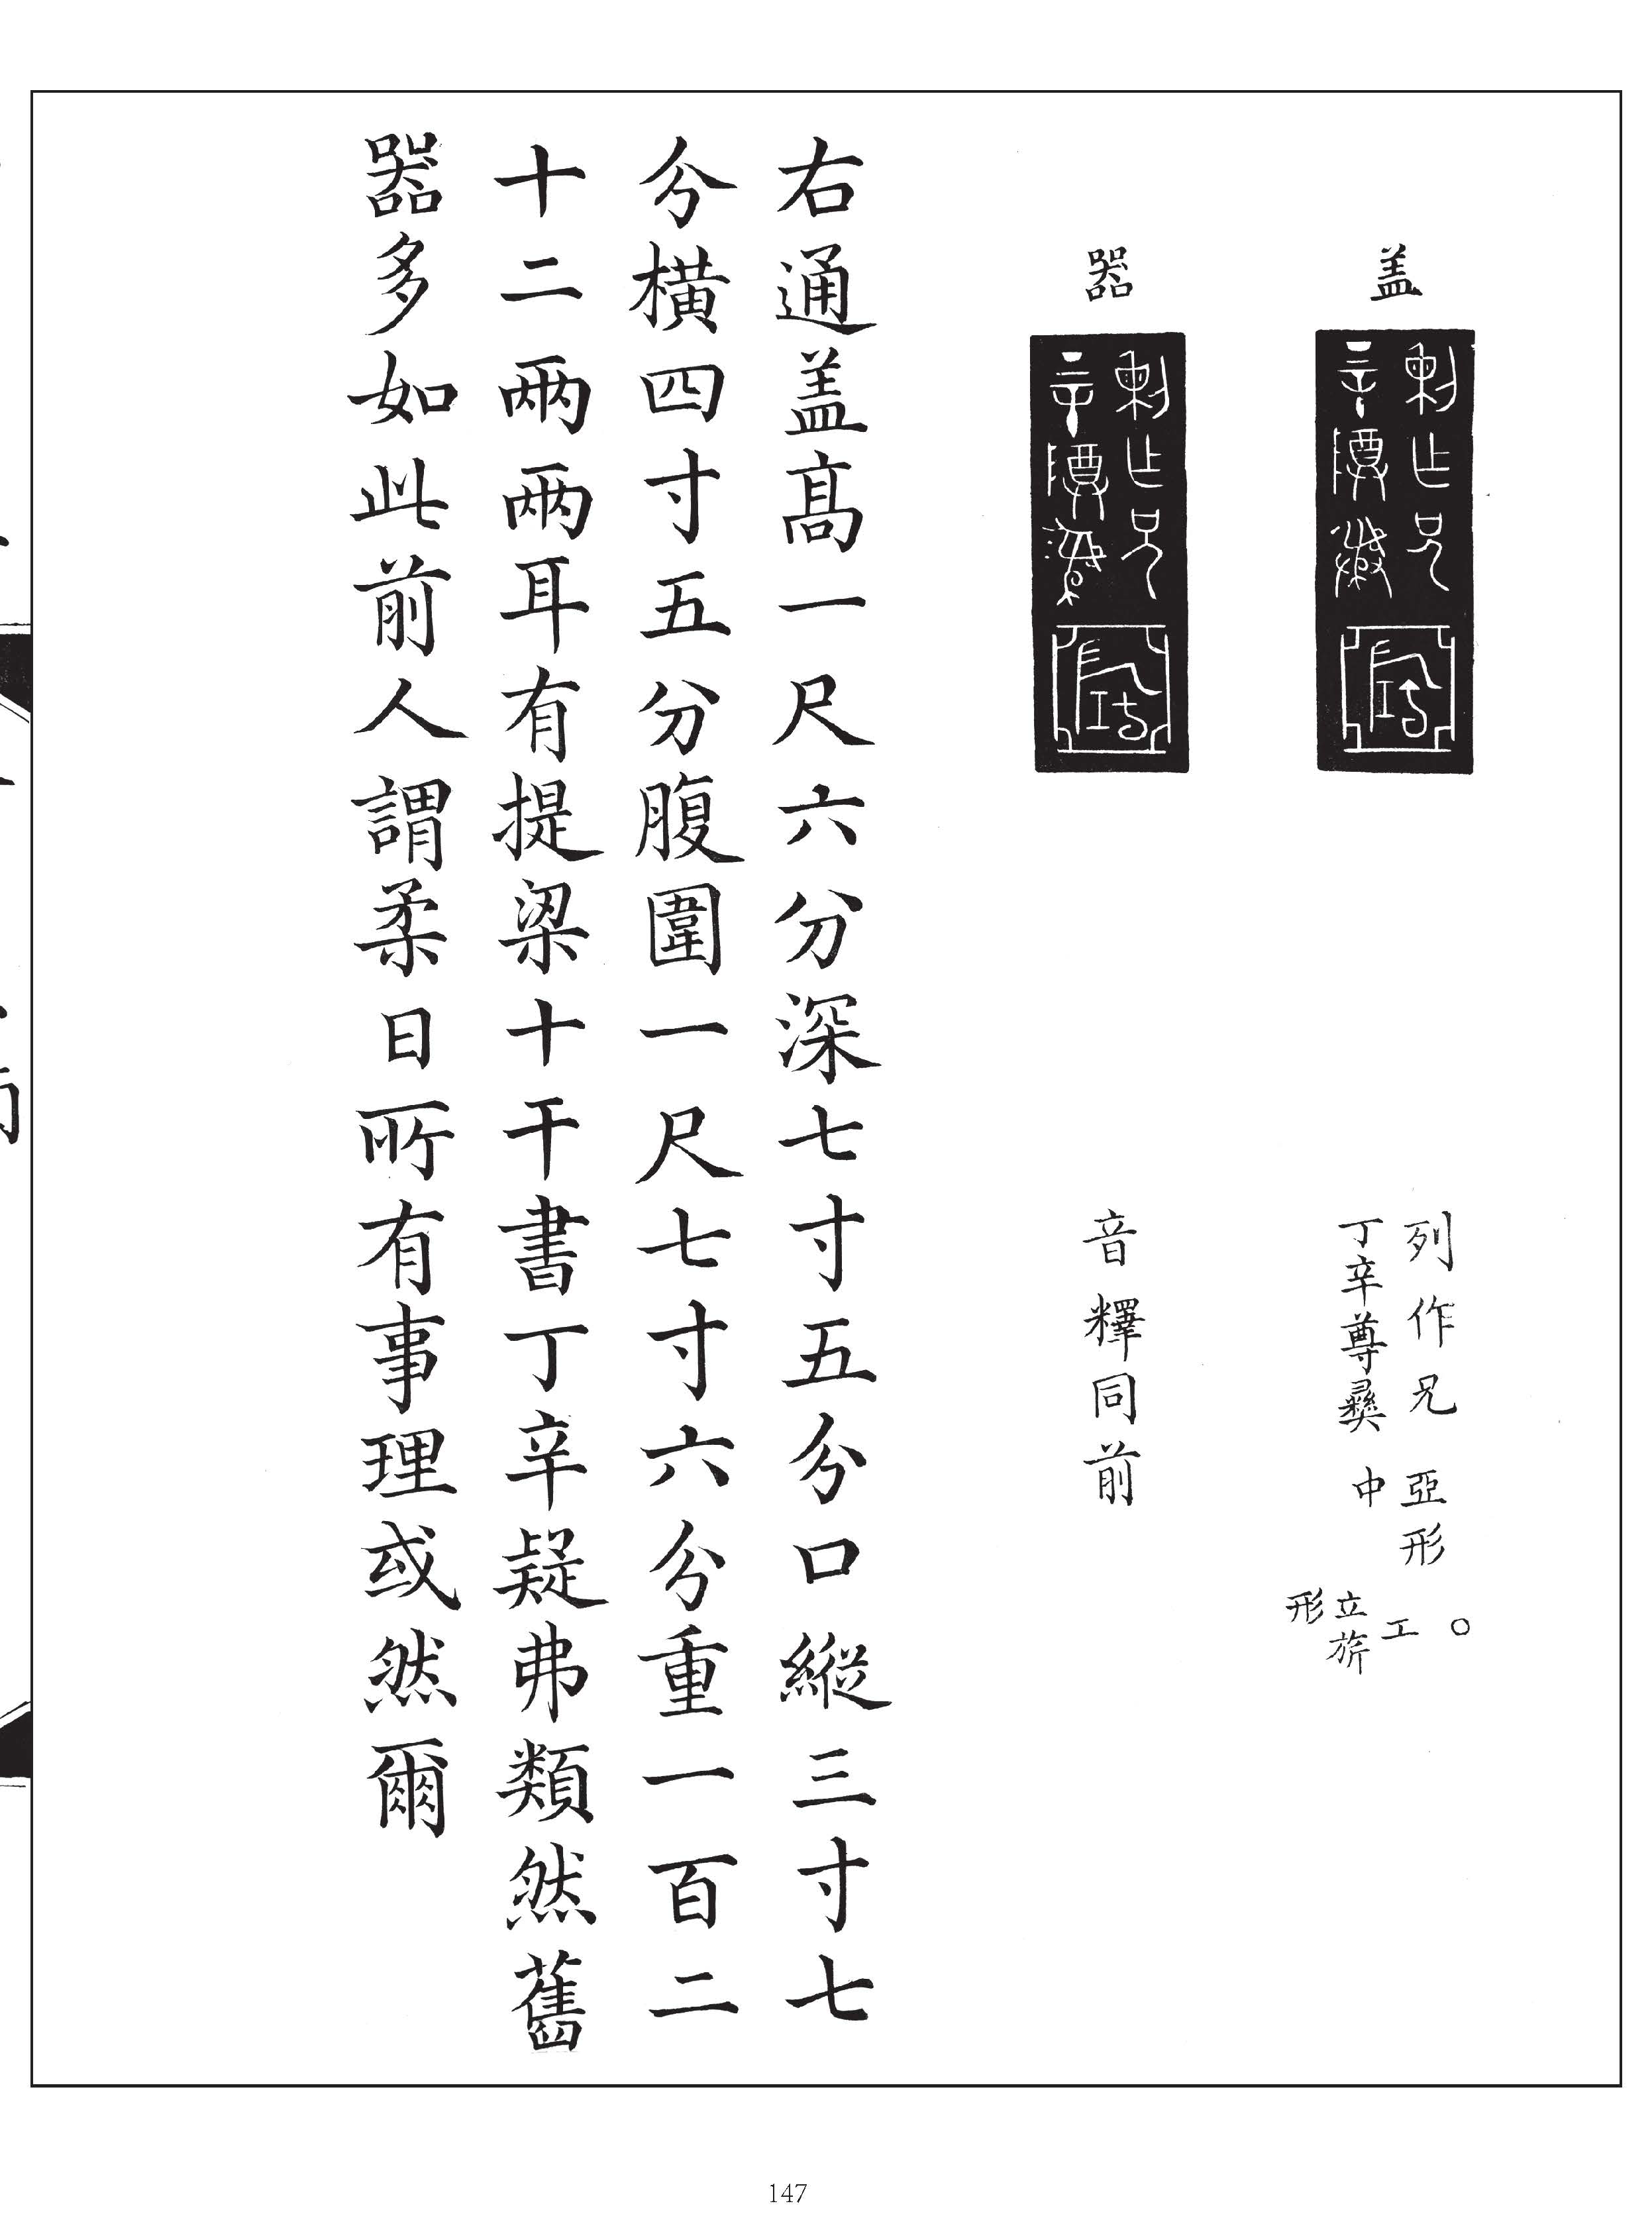 盖
列作兄 亞形 〇
丁辛尊彞 中 工
立旂
形
器
音釋同前
右通盖髙一尺六分深七寸五分口縱三寸七
分横四寸五分腹圍一尺七寸六分重一百二
十二兩兩耳有提梁十干書丁辛疑弗類然舊
器多如此前人謂柔日所有事理或然爾
147